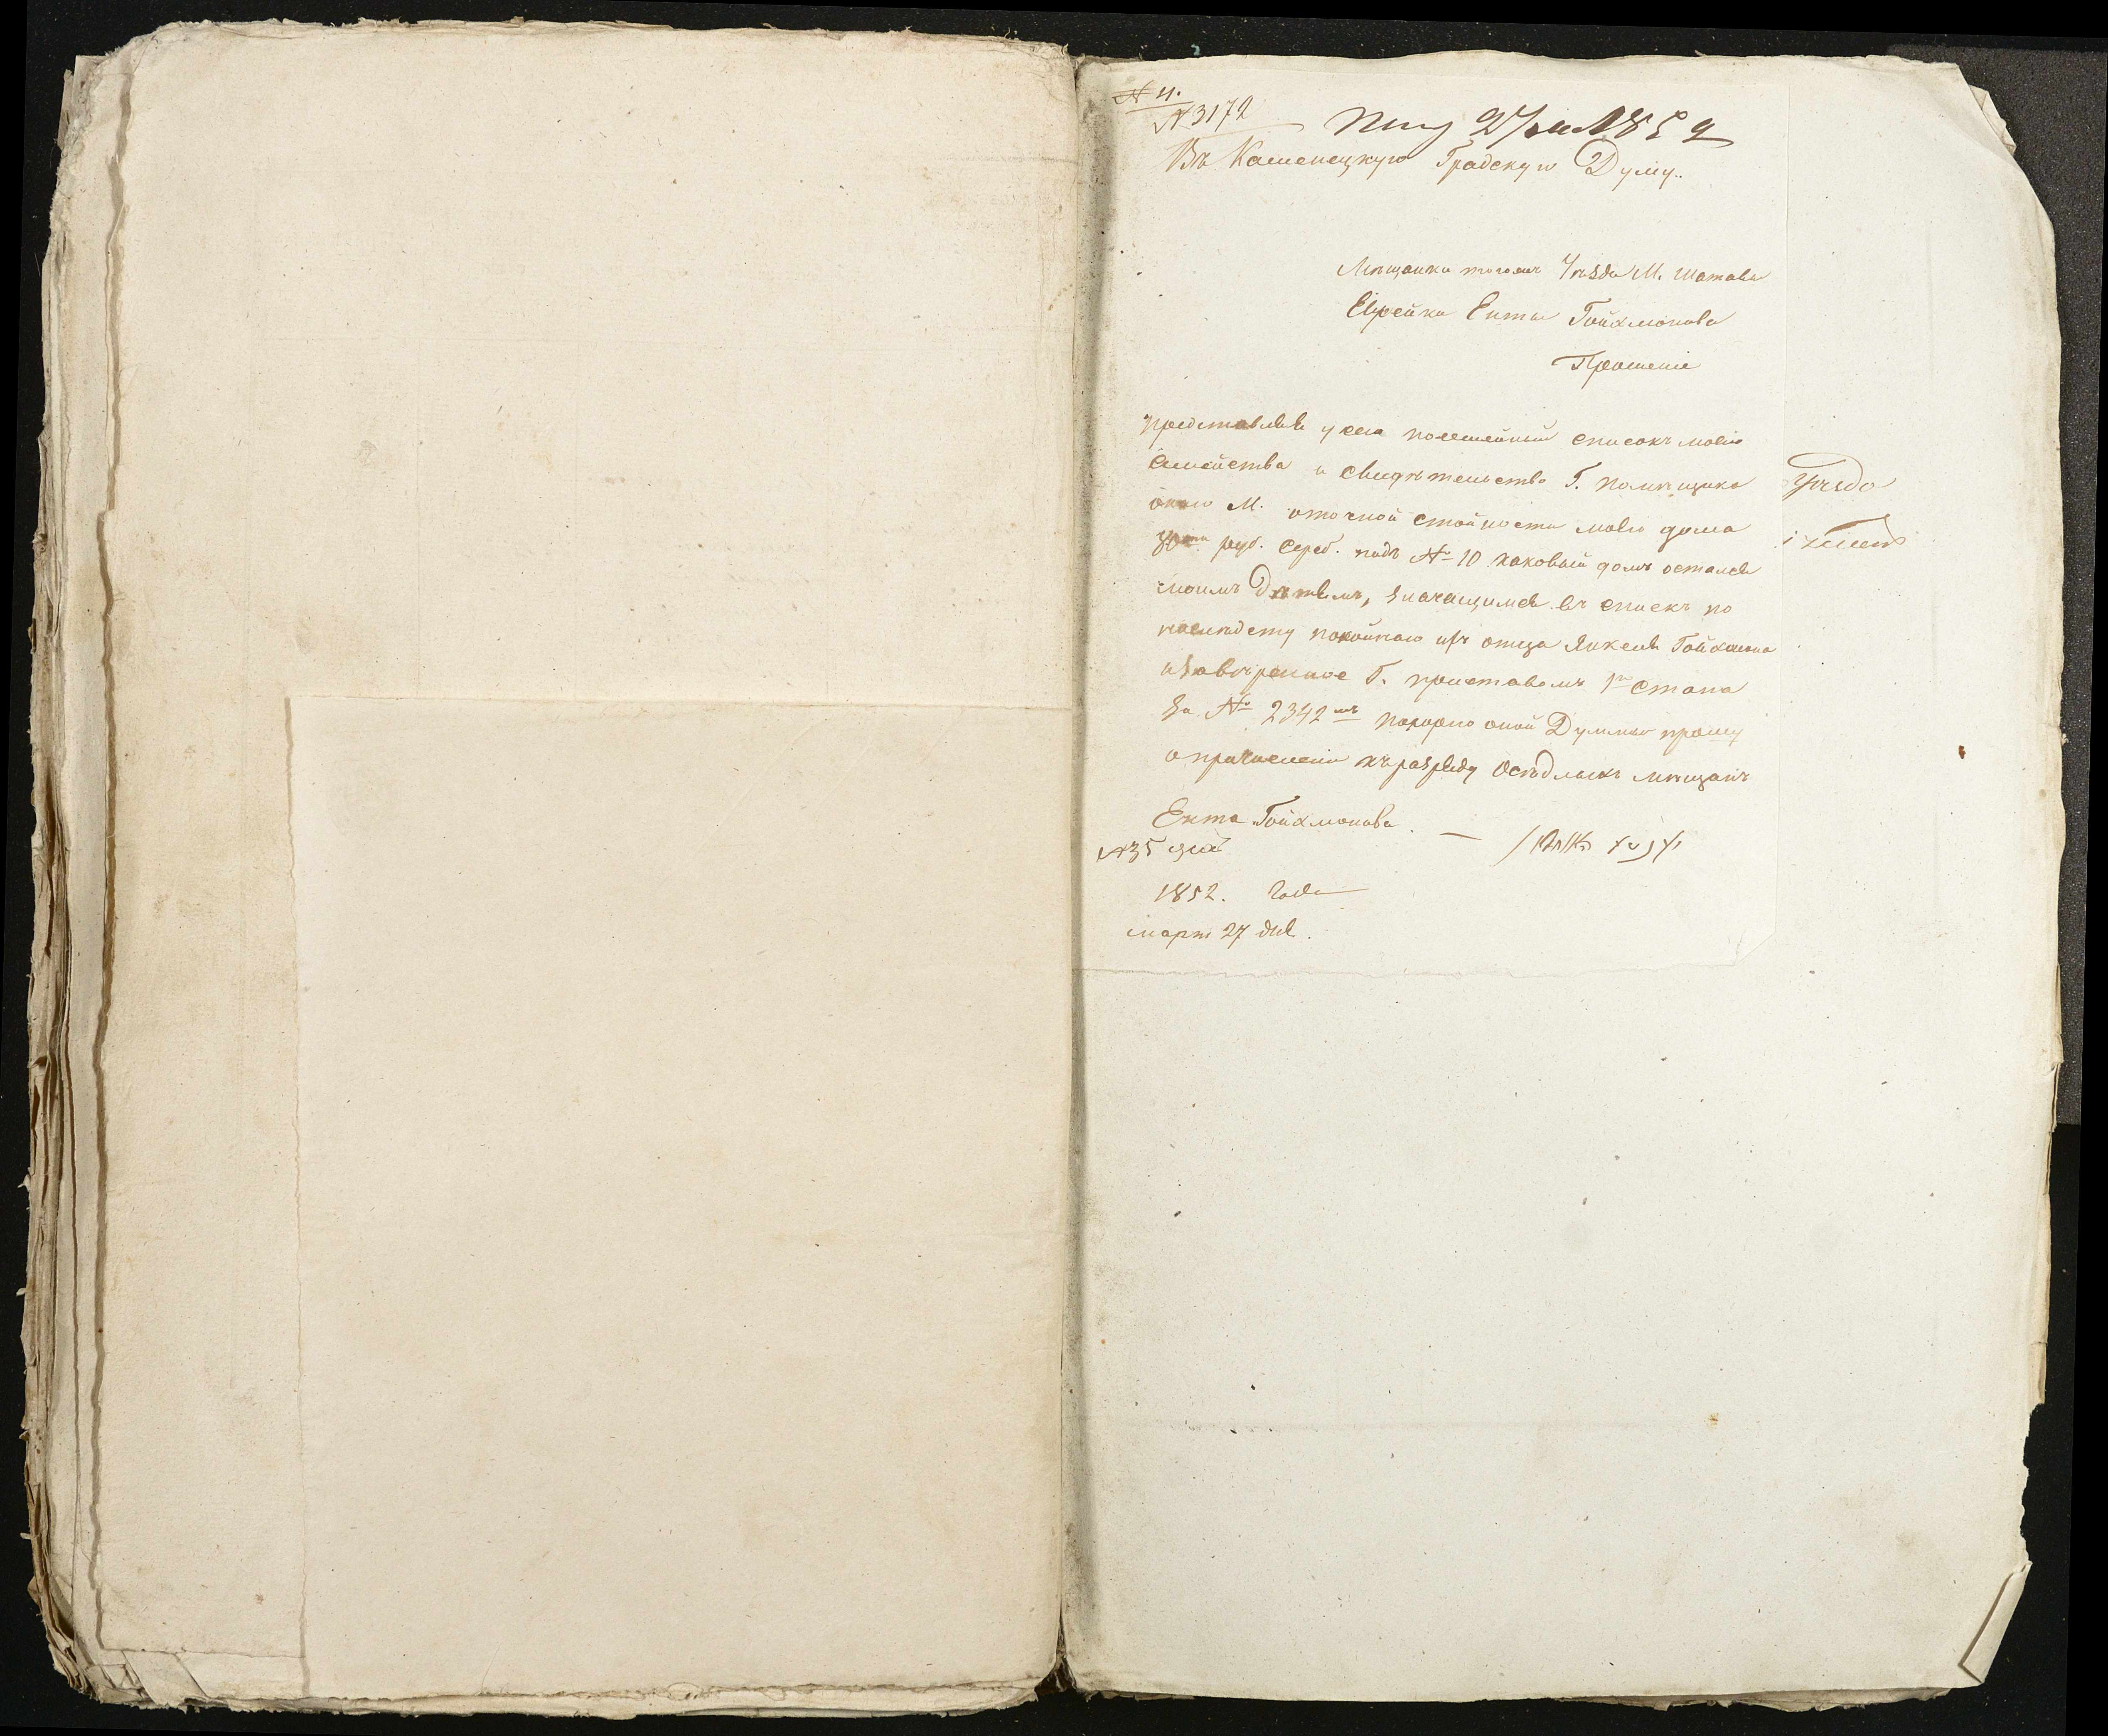 № 4.
№ 3172
27 1852
Въ Каменецкую Градскую Думу.
Мѣщанки тогожъ Уѣзда М. Шатавы
Еврейки Енты Гойхмановой
Прошеніе
Представляя у сего посемейный списокъ моего
Семейства и свидѣтельство Г. помѣщика
оного М. оточной стойности моего дома
руб. сереб. подъ № 10 каковый домъ остался
моимъ Дѣтямъ, значащимся въ списке по
наслѣдству покойнаго ихъ отца Янкеля Гойхмана
изавѣренное Г. приставомъ 1го Стана
за № 2342мъ покорно оной Думы прошу
опричисленіи къ разряду Осѣдлыхъ мѣщанъ
Ента Гойхманова. —
№ 35
1852. Года
мартъ 27 дня.